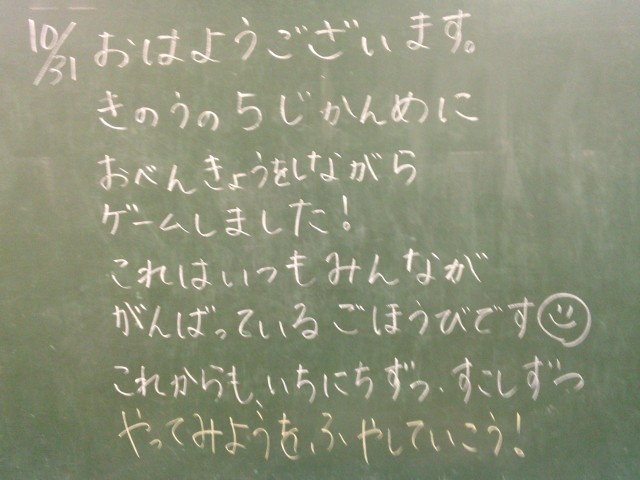 10/31 おはようございます。
きのうの5じかんめに
おべんきょうをしながら
ゲームしました!
これはいつもみんなが
がんばっているごほうびです
これからも、いちにちずつ、すこしずつ
やってみようをふやしていこう!